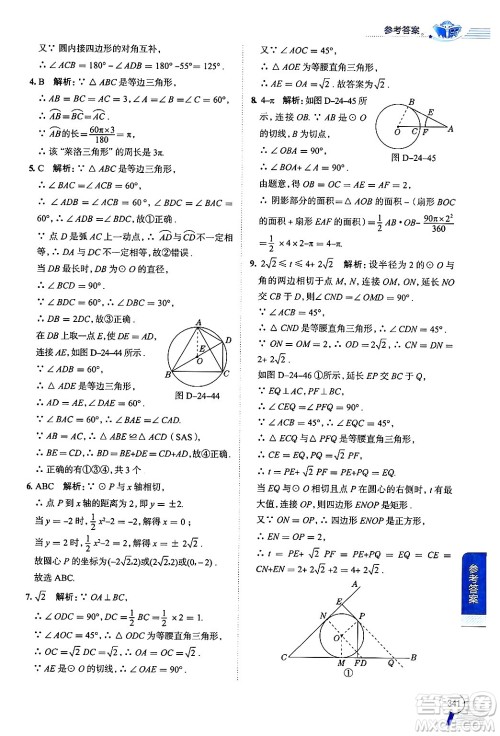 参考答案
又∵ 圆内接四边形的对角互补，
∴ ∠ABC = 180° - ∠ADC = 180° -55°= 125°.
4. B 解析：∵ △ABC 是等边三角形，
∴ AB = BC = AC = 3，∠A = ∠B = ∠C = 60°，
∴ AB = BC = AC.
∵ AB 的长= 60π×3/180 =π，
∴ 该“莱洛三角形”的周长是 3π.
5. C 解析：∵ △ABC 是等边三角形，
∴ ∠BAC = ∠ACB = 60°，
∴ ∠BAC = ∠BDC，故①正确.
∵ 点 D 是弧上一动点，∴ AD 与 CD 不一定相
等，∴ DA 与 DC 不一定相等，故②错误.
当 DB 最长时，DB 为⊙O 的直径，
∴ ∠BCD = 90°.
∵ ∠BDC = 60°，∴ ∠DBC = 30°，
∴ DB = 2DC，故③正确.
在 DB 上取一点 E，使 DE = AD，
连接 AE，如图 D-24-44.
∵ ∠ADB = 60°，
∴ △ADE 是等边三角形，
∴ ∠EAD = ∠BAC = 60°，
∴ ∠BAE = ∠CAD.
图 D-24-44
∵ AB = AC，∠BAE = ∠CAD，AE = AD，
∴ △BAE ≌ △CAD（SAS），
∴ BE = CD，∴ BD = BE + DE = CD + AD，故④正确.
∴ 正确的有①③④，共 3 个.
6. ABC 解析：∵ ⊙P 与 x 轴相切，
∴ 点 P 到 x 轴的距离为 2，即 y = ±2.
当 y = -2 时，1/2 x²-2 = -2，解得 x = 0；
当 y = 2 时，1/2 x²-2 = 2，解得 x = ±2√2.
故圆心 P 的坐标为（2√2,2）或（-2√2,2）或（0,-2）.
故选 ABC.
7. √2 解析：∵ OA⊥BC，
∴ ∠ODC = 90°，CD = 1/2 BC = 1/2 ×2 = 1.
∵ ∠AOC = 45°，∴ △ODC 为等腰直角三角形，
∴ OC = √2 OD = √2，∴ OA = OC = √2.
∵ AE 是⊙O 的切线，∴ ∠OAE = 90°.
∵ ∠AOC = 45°，
∴ △AOE 为等腰直角三角形，
∴ AE = OA = √2. 故答案为 √2.
8. 4-π 解析：如图 D-24-45，
连接 OB. ∵ AB 是⊙O
的切线，∴ OB⊥AB，
∴ ∠OBA = 90°，
图 D-24-45
∴ ∠BOA + ∠A = 90°.
由题意，得 OB = OC = AE = AF = 2，
∴ 阴影部分的面积 = △BOA 的面积 -（扇形 BOC
的面积 + 扇形 EAF 的面积）= 1/2 AB·OB - 90π×2²/360
= 1/2 ×4×2-π = 4-π.
9. 2√2 ≤ t ≤ 4+2√2 解析：设半径为 2 的⊙O 与
角的两边相切于点 M，N，连接 OM，ON，延长 NO
交 CB 于点 D，∴ ∠CND = ∠OMD = 90°.
∵ ∠ACB = 45°，
∴ △CND 是等腰直角三角形，∴ ∠CDN = 45°.
∵ ON = OM = 2，∴ OD = 2√2，
∴ CN = DN = ON + OD = 2 + 2√2.
如图 D-24-46 ①所示，延长 EP 交 CB 于点 Q.
∵ EQ⊥AC，PF⊥BC，
∴ ∠CEQ = ∠PFQ = 90°.
∵ ∠ACB = 45°，∴ ∠EQC = 45°，
∴ △ECQ 与 △PFQ 是等腰直角三角形，
∴ CE = EQ，PQ = √2 PF，
∴ t = PE+ √2 PF = PE + PQ = EQ.
当 EQ 与⊙O 相切且点 P 在圆心的右侧时，t 有最
大值，连接 OP，则四边形 ENOP 是正方形，
∴ EN = OP = 2，
∴ t = PE + √2 PF = PE + PQ = EQ = CE = CN +
EN = 2 + 2√2 + 2 = 4 + 2√2.
①
参考答案
341